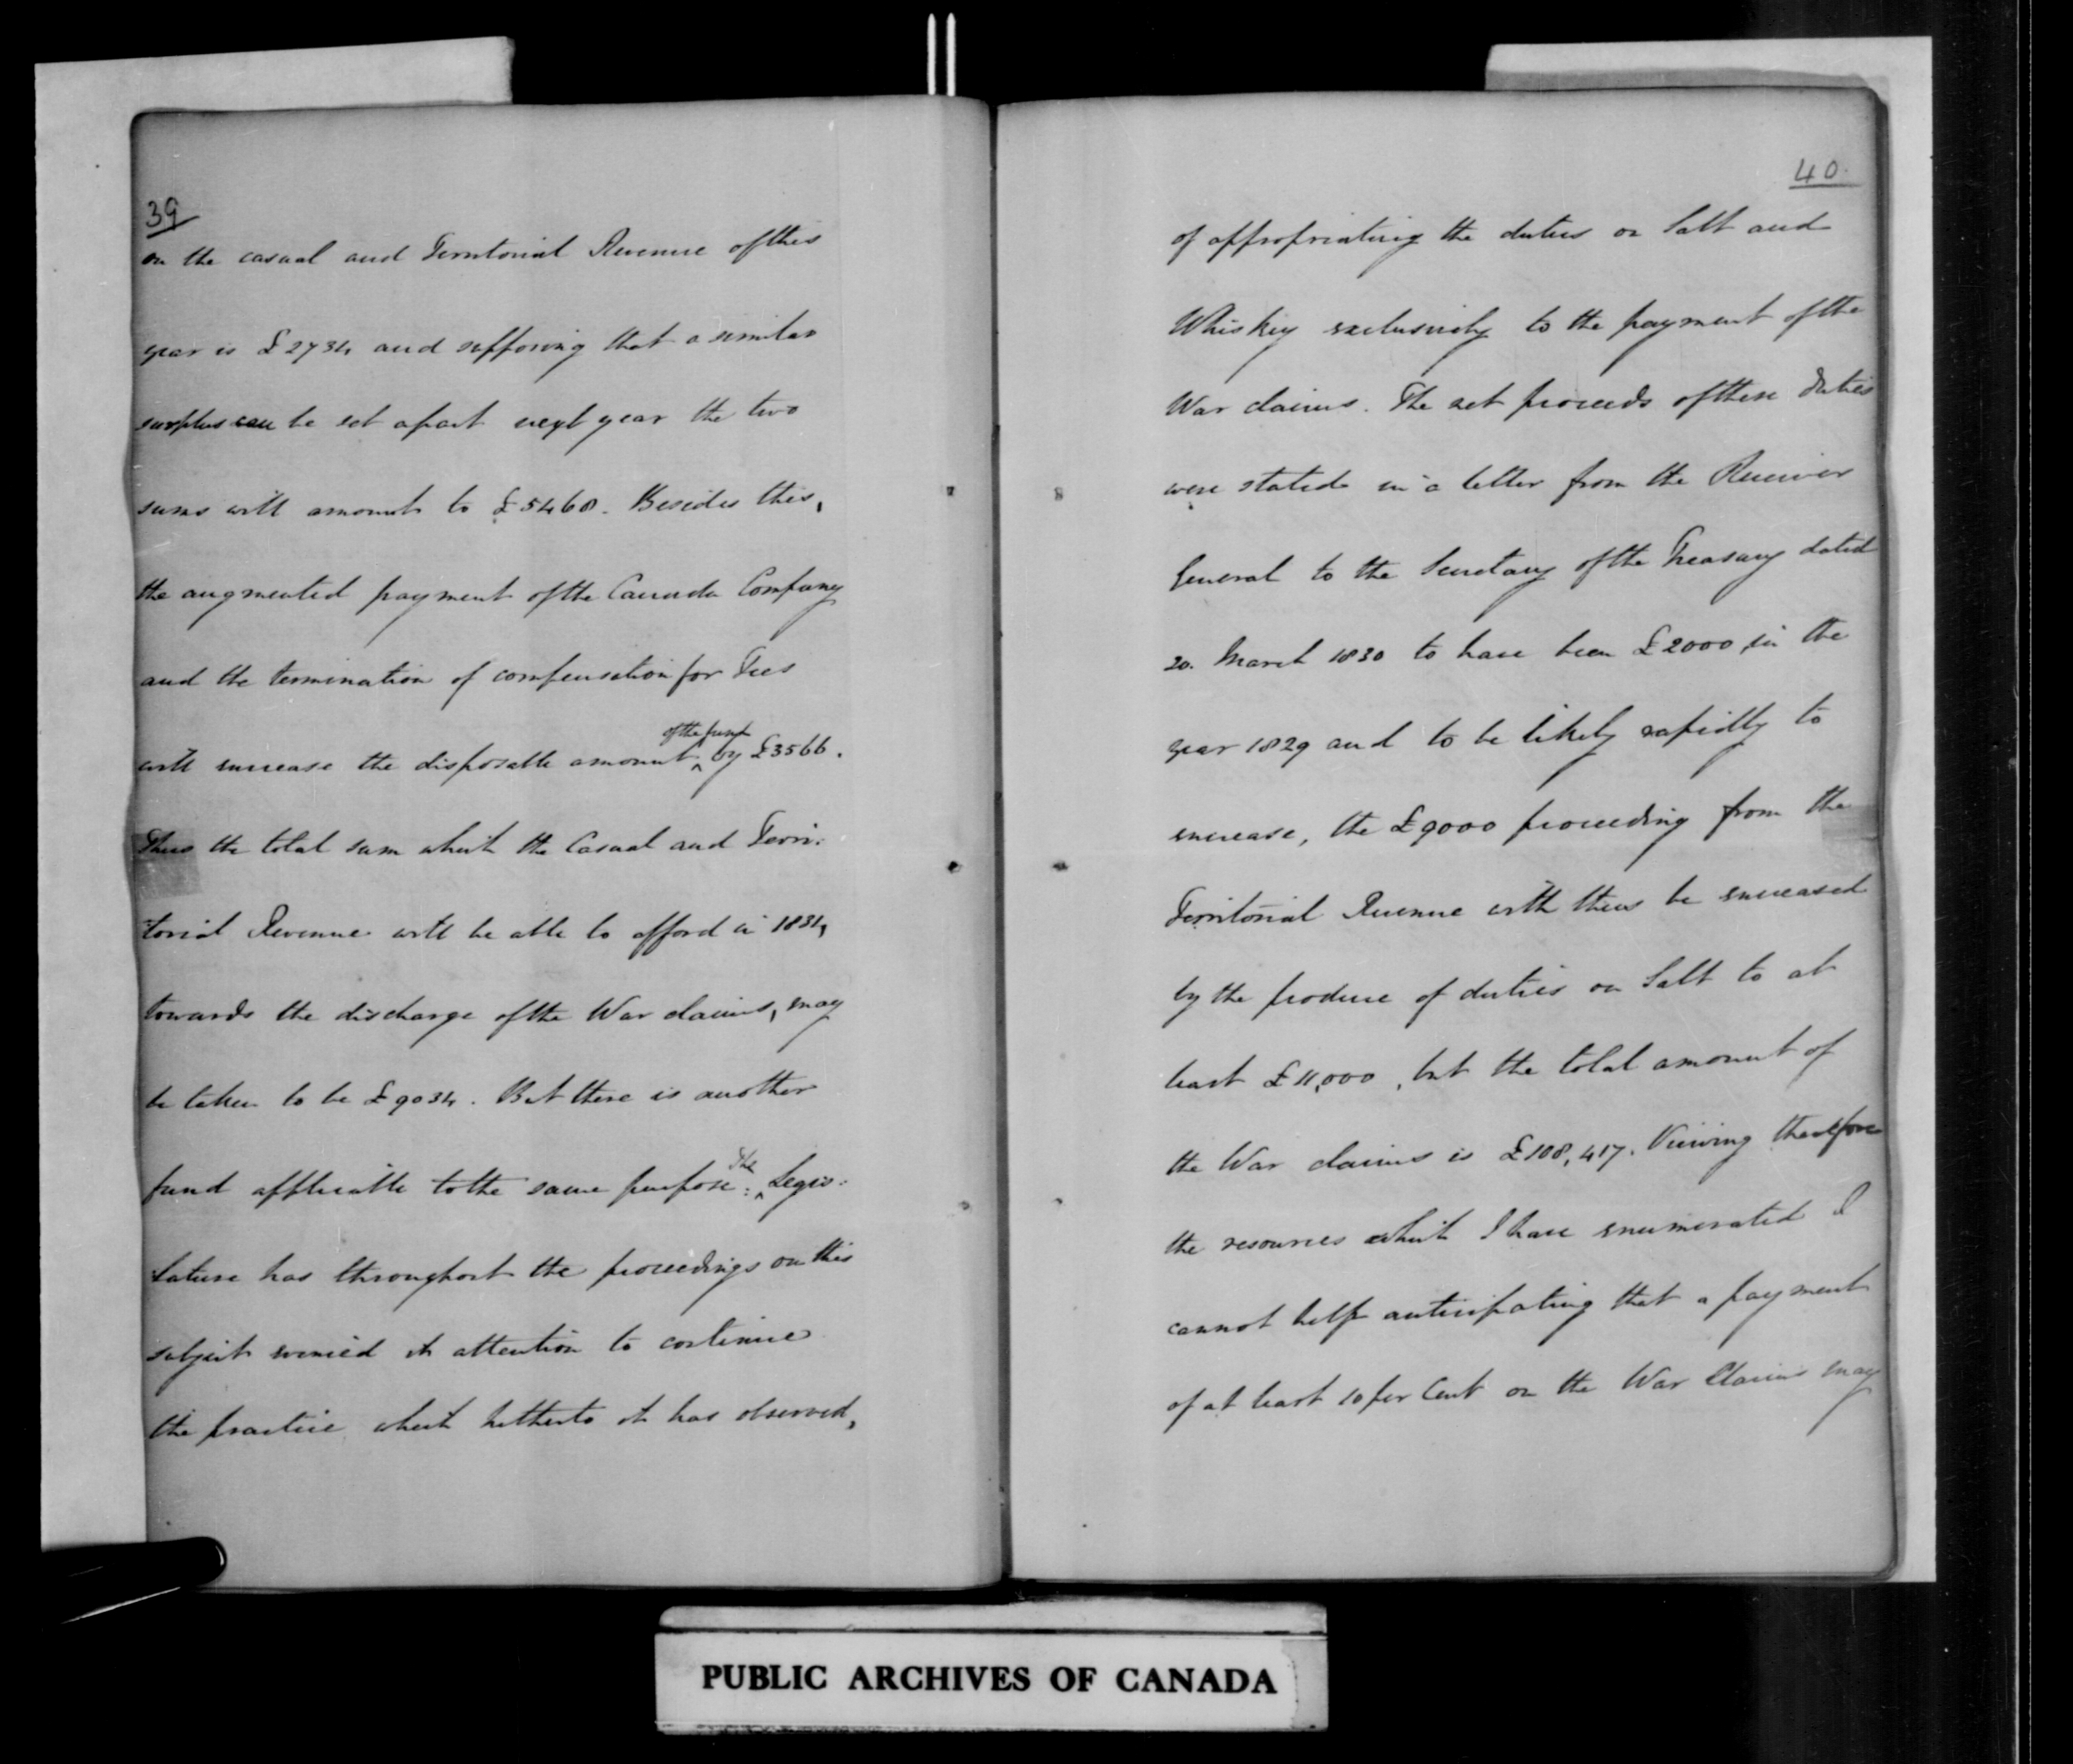 39
on the casual and Territorial Revenue of this
year is £2734 and supposing that a similar
surplus can be set apart next year the two
sums will amount to £5468. Besides this,
the augmented payment of the Canada Company
and the termination of compensation for Fees
will increase the disposable amount ^of the fund by £3566.
Thus the total sum which the Casual and Terri:
torial Revenue will be able to afford in 1831,
towards the discharge of the War claims, may
be taken to be £9034. But there is another
fund applicable to the same purpose: ^The Legis:
lature has throughout the proceedings on this
subject evinced its attention to continue
the practice which hitherto it has observed,
40.
of appropriating the duties on Salt and
Whiskey exclusively to the payment of the
War claims. The net proceeds of these Duties
were stated in a letter from the Receiver
General to the Secretary of the Treasury dated
20. March 1830 to have been £2000 in the
year 1829 and to be likely rapidly to
encrease, the £9000 proceeding from the
Territorial Revenue will thus be encreased
by the produce of duties on Salt to at
least £11,000, but the total amount of
the War claims is £108,417. Viewing therefore
the resources which I have enumerated I
cannot help anticipating that a payment
of at least 10 per Cent on the War Claims may
PUBLIC ARCHIVES OF CANADA